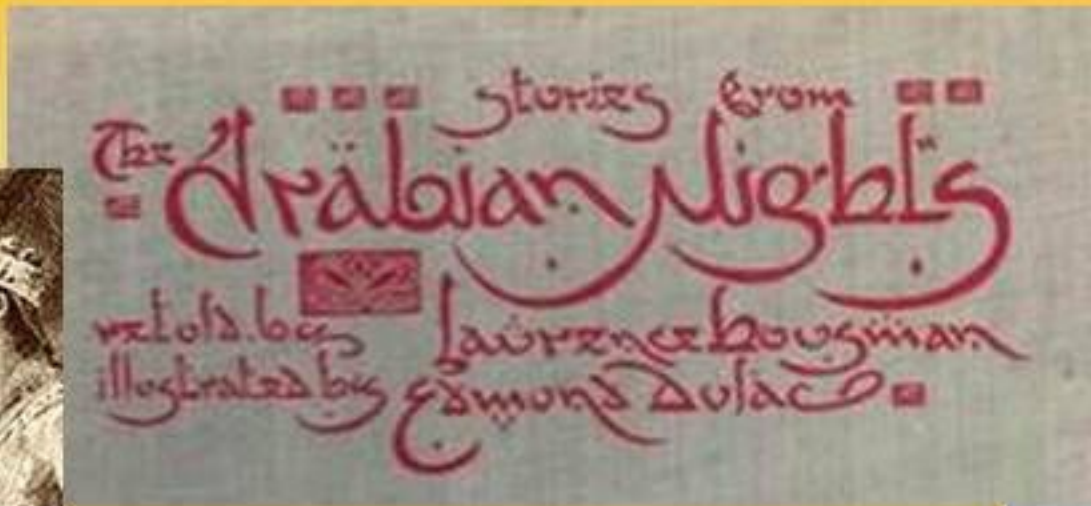 stories from
The Arabian Nights
retold.by Laurence housman
illustrated by Edmund dulac